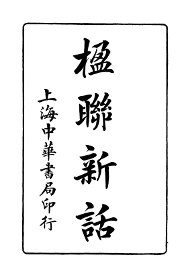 楹聯新話
上海中華書局印行